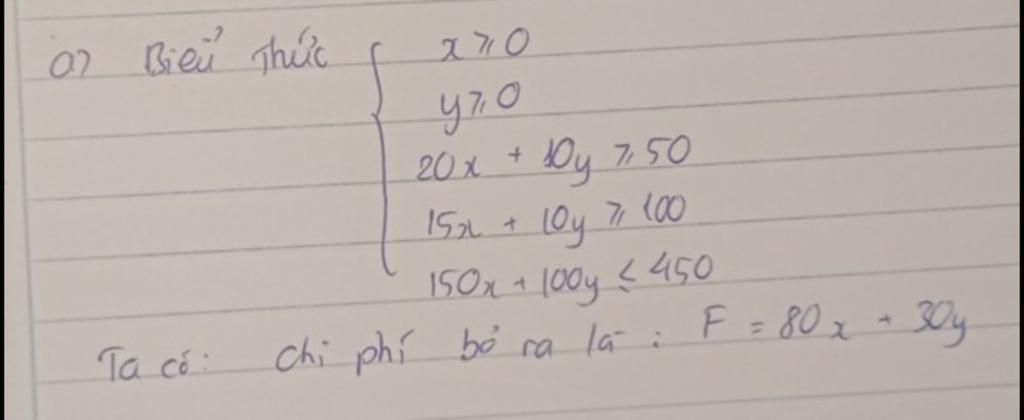 a) Biểu thức { x ≥ 0
y ≥ 0
20x + 10y ≥ 50
15x + 10y ≥ 100
150x + 100y ≤ 450
Ta có: chi phí bỏ ra là : F = 80x + 30y